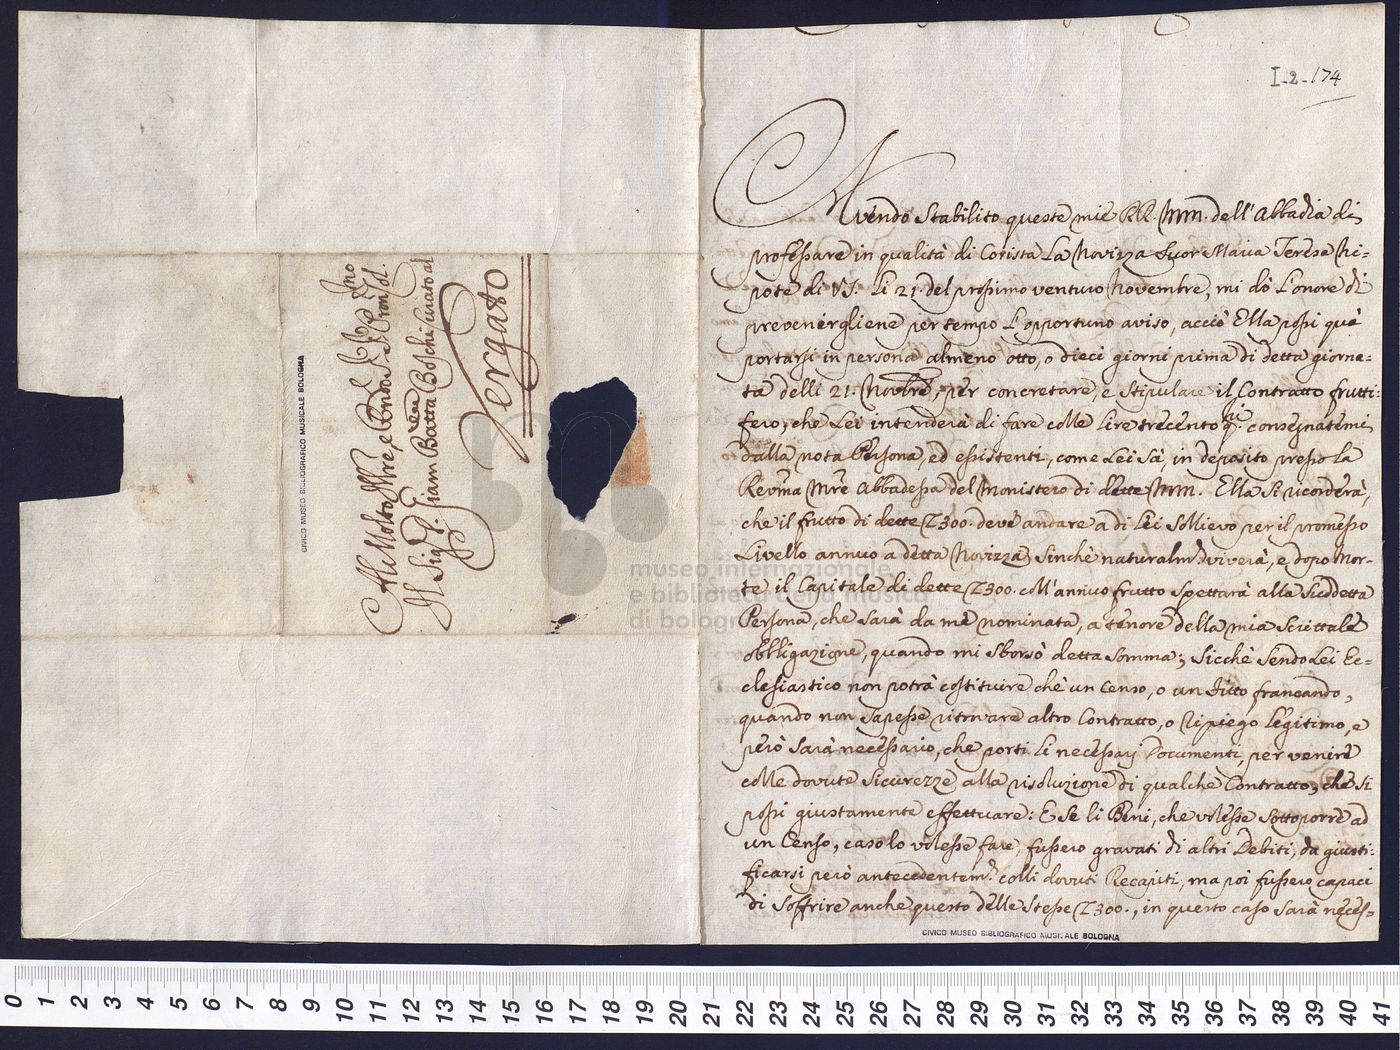 Al Molto Illre, e Rndo Sig.r P.rone
Il Sig.r D. Giam Batta Boschi Curato al
Vergato
CIVICO MUSEO BIBLIOGRAFICO MUSICALE BOLOGNA
museo internazionale
e biblioteca della musica
di bologna
I-2-174
Avendo Stabilito queste mie RR. Mm. dell'Abbadia di
professare in qualità di Corista La Novizza Suor Maria Teresa Ni-
pote di VS. Li 21. del prossimo venturo Novembre, mi dò L'onore di
prevenirgliene per tempo L'opportuno aviso, acciò Ella possi quà
portarsi in persona almeno otto, o dieci giorni prima di detta giorna-
ta delli 21. Novbre, per concretare, e Stipulare il Contratto frutti-
fero, che Lei intenderà di fare colle Lire trecento qui consegnatemi
dalla nota Persona, ed esistenti, come Lei Sà, in deposito presso La
Revma Mre Abbadessa del Monistero di dette Mm. Ella Si ricorderà,
che il frutto di dette L300. deve andare a di Lei Sollievo per il promesso
Livello annuo a detta Novizza, Sinchè naturalm.te viverà, e dopo Mor-
te il Capitale di dette L300. coll'annuo frutto Spettarà alla Suddetta
Persona, che Sarà da mè nominata, a tenore della mia Scrittale
obbligazione, quando mi Sborsò detta Somma; Sicchè Sendo Lei Ec-
clesiastico non potrà costituire chè un Censo, o un fitto francando,
quando non Sapesse ritrovare altro Contratto, o Ripiego Legitimo, e
però Sarà necessario, che porti Li necessarj Documenti, per venire
colle dovute Sicurezze alla risoluzione di qualche Contratto, che Si
possi giustamente effettuare: E Se li Beni, che volesse Sottoporre ad
un Censo, caso lo volesse fare, fussero gravati di altri Debiti, da giusti-
ficarsi però antecedentem.te colli dovuti Recapiti, ma poi fussero capaci
di Soffrire anche questo delle Stesse L300., in questo caso Sarà neces-
CIVICO MUSEO BIBLIOGRAFICO MUSICALE BOLOGNA
0 1 2 3 4 5 6 7 8 9 10 11 12 13 14 15 16 17 18 19 20 21 22 23 24 25 26 27 28 29 30 31 32 33 34 35 36 37 38 39 40 41